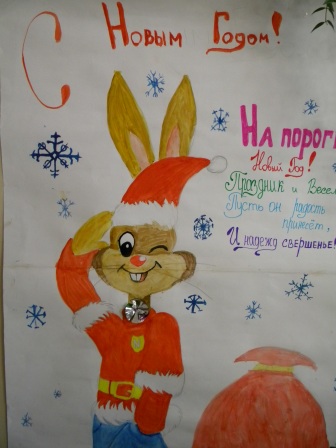 С Новым Годом!
На порог
Новий Год!
Праздник и Весел
Пусть он радость
принесёт,
И надежд свершенье!